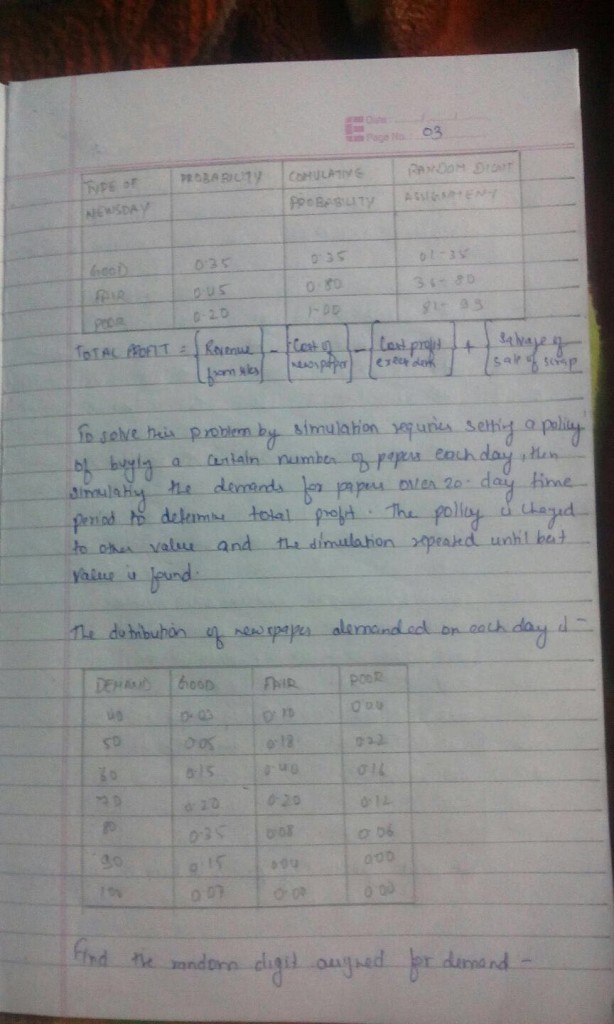 Date / /
Page No. 03
TYPE OF NEWSDAY PROBABILITY COMULATIVE PROBABILITY RANDOM DIGIT ASSIGNMENT
GOOD 0.35 0.35 01-35
FAIR 0.45 0.80 36-80
POOR 0.20 1.00 81-
TOTAL PROFIT = [Revenue from sales] - [Cost of newspaper] - [Lost profit] + [Salvage of sale of scrap]
To solve this problem by simulation requries setting a policy
of buyly a certain number of papers each day, then
simulaty the demands for papers over 20-day time
period to determine total profit. The policy is chaged
to other value and the simulation repeated until best
value is found.
The distribution of newspaper demanded on each day is -
DEMAND GOOD FAIR POOR
40 0.03 0.10
50 0.05 0.18 0.22
60 0.15 0.40 0.16
70 0.20 0.20 0.12
80 0.35 0.08 0.06
90 0.15 0.04 0.00
100 0.07 0.00 0.00
Find the random digit assigned for demand -